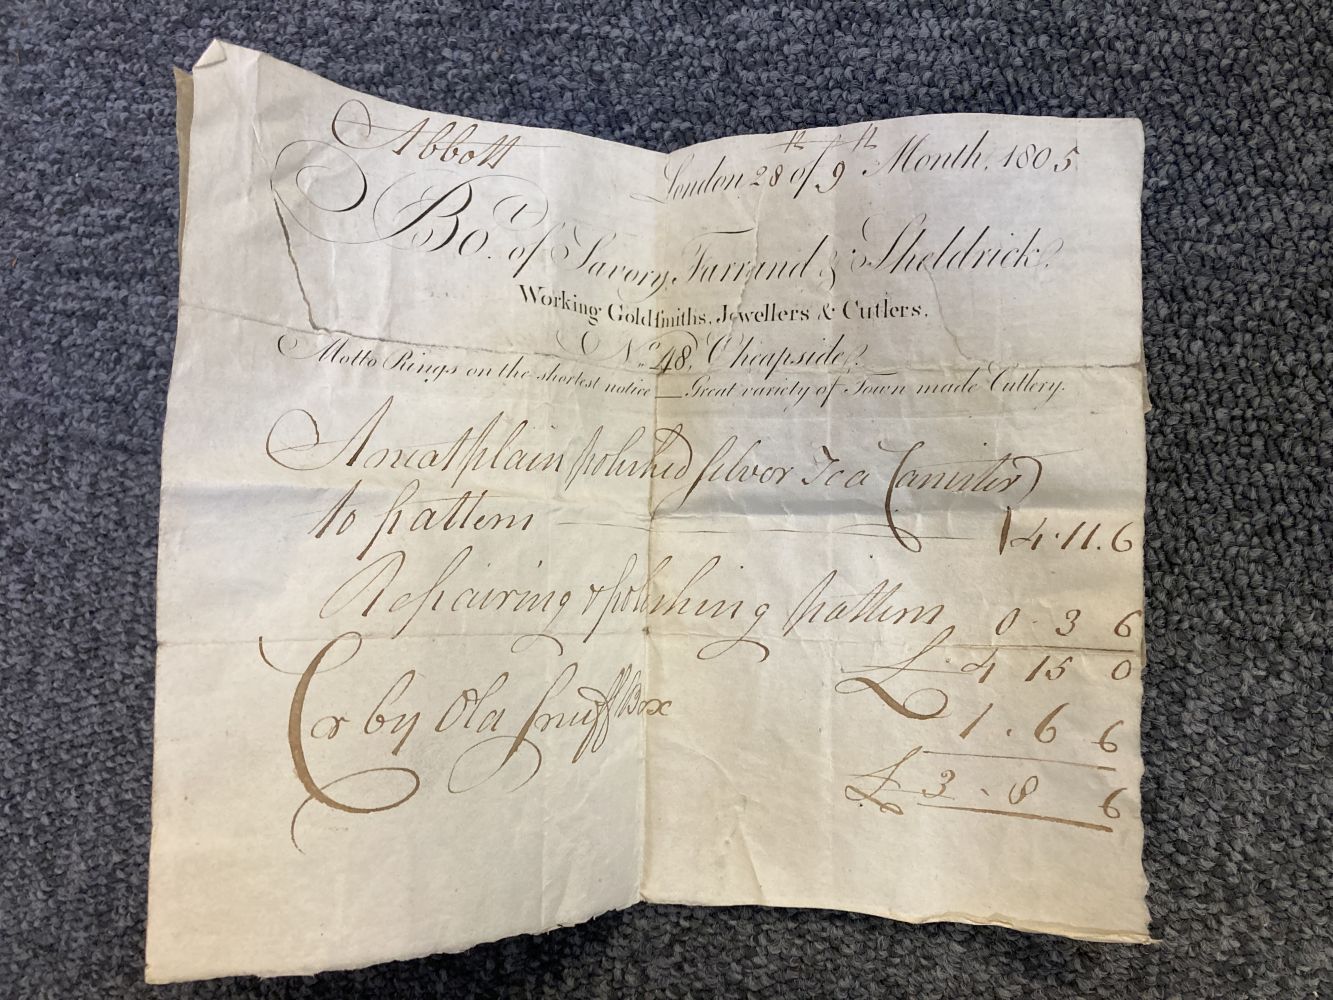 Abbott
London 28th of 9th Month, 1805
Bot. of Savory, Farrand & Sheldrick,
Working Goldſmiths, Jewellers & Cutlers.
No. 48, Cheapside,
Motto Rings on the shortest notice — Great variety of Town made Cutlery.
A neat plain polished silver Tea Canister
to pattern 4.11.6
Repairing & polishing pattern 0.3 6
£ 4 15 0
Cr by Old Snuff Box 1.6 6
£ 3.8 6